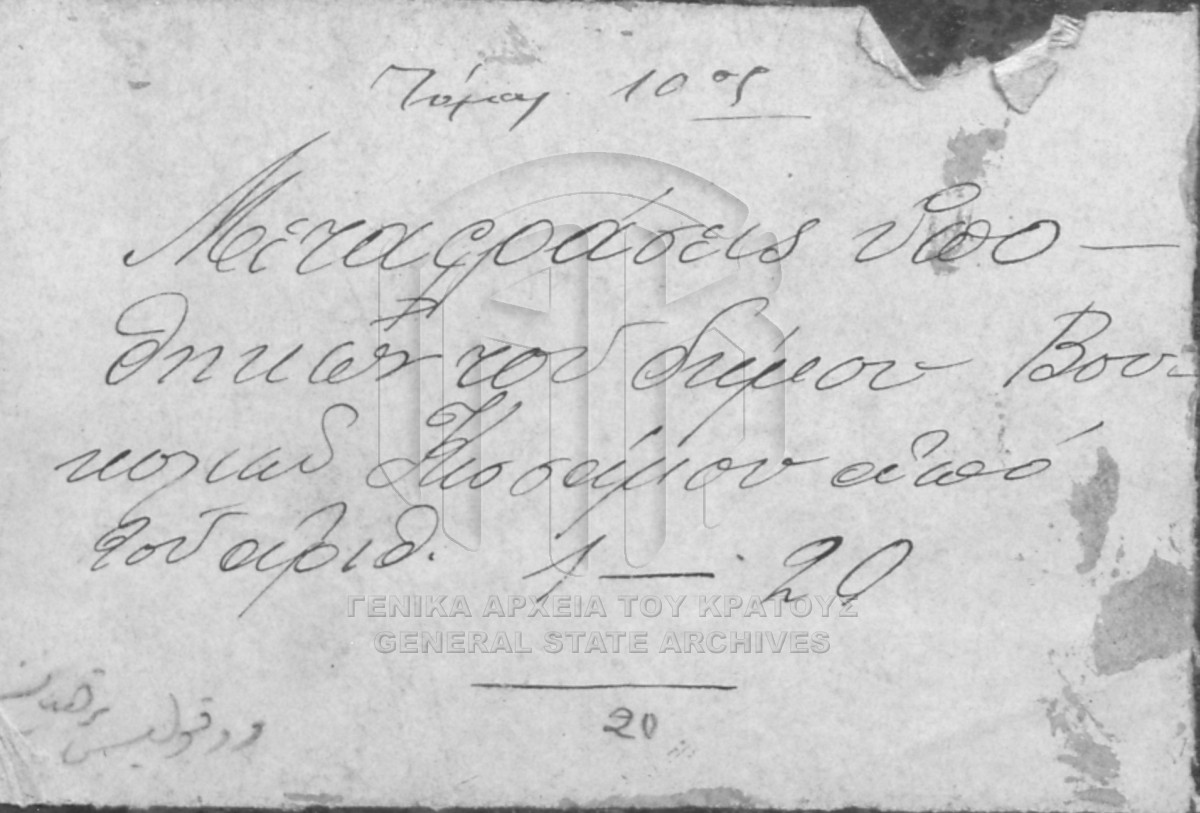 Τόμος 10ος
Μεταφράσεις ὑπο—
θηκῶν τοῦ δήμου Βου-
κολιῶν Κισσάμου ἀπό
τοῦ ἀριθ. 1 — 20
ΓΕΝΙΚΑ ΑΡΧΕΙΑ ΤΟΥ ΚΡΑΤΟΥΣ
GENERAL STATE ARCHIVES
20